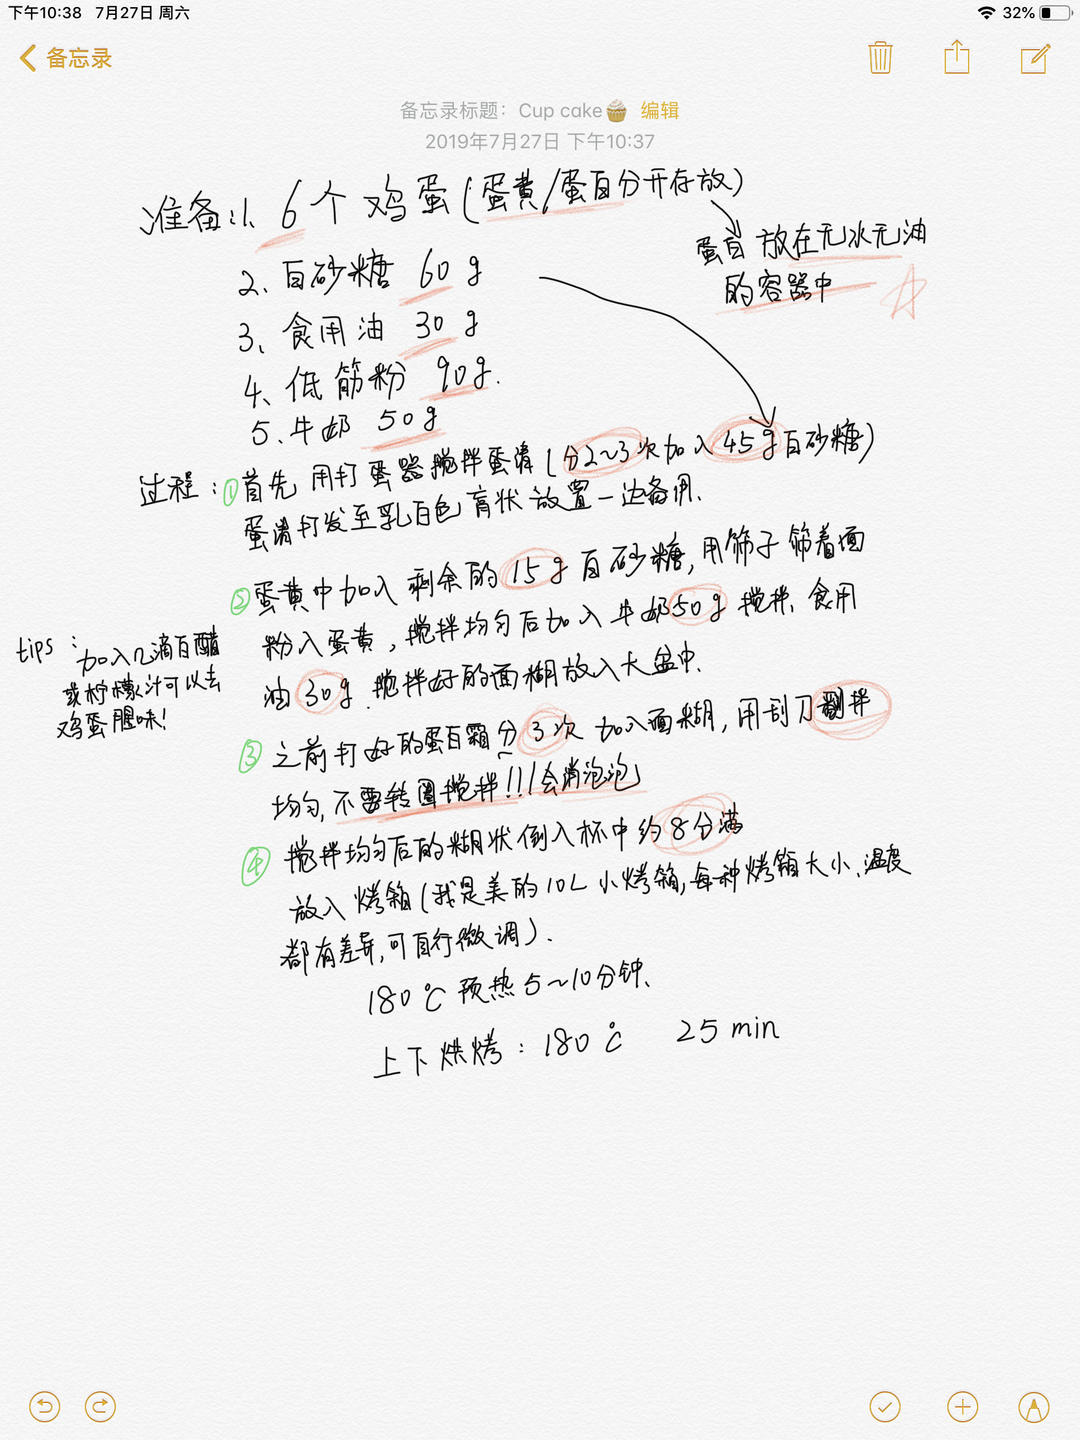 下午10:38 7月27日 周六
32%
备忘录
备忘录标题：Cup cake🧁 编辑
2019年7月27日 下午10:37
准备：1、6个鸡蛋（蛋黄/蛋白分开存放）
蛋白放在无水无油
的容器中
2、白砂糖 60g
3、食用油 30g
4、低筋粉 90g.
5、牛奶 50g
过程：①首先用打蛋器搅拌蛋清（分2~3次加入45g白砂糖）
蛋清打发至乳白色膏状放置一边备用、
②蛋黄中加入剩余的15g白砂糖，用筛子筛着面
粉入蛋黄，搅拌均匀后加入牛奶50g搅拌、食用
油30g、搅拌好的面糊放入大盆中、
tips：加入几滴白醋
或柠檬汁可以去
鸡蛋腥味！
③之前打好的蛋白霜分3次加入面糊，用刮刀翻拌
均匀，不要转圈搅拌!!!会消泡泡
④搅拌均匀后的糊状倒入杯中约8分满
放入烤箱（我是美的10L小烤箱，每种烤箱大小、温度
都有差异，可自行微调）.
180℃预热5~10分钟、
上下烘烤：180℃ 25min